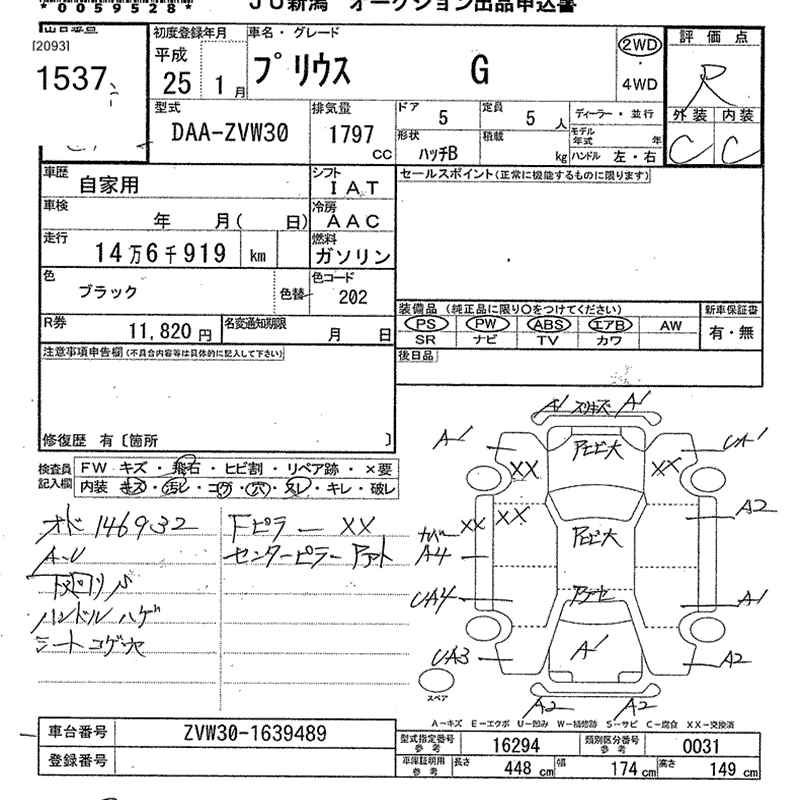 *0059528*
JU新潟 オークション出品申込書
[2093]
1537
初度登録年月
平成
25 1月
車名・グレード
プリウス G
2WD
4WD
評価点
R
外装 内装
C C
型式
DAA-ZVW30
排気量
1797
CC
ドア 5
定員 5人
ディーラー・並行
形状
ハッチB
積載 kg
モデル年式 年
ハンドル 左・右
車歴
自家用
シフト
IAT
セールスポイント(正常に機能するものに限ります)
車検
年 月( 日)
冷房
AAC
走行
14万6千919 km
燃料
ガソリン
色
ブラック
色替
色コード
202
R券
11,820円
名変通知期限
月 日
装備品(純正品に限り○をつけてください)
新車保証書
PS PW ABS エアB AW
有・無
SR ナビ TV カワ
後日品
注意事項申告欄(不具合内容等は具体的に記入して下さい)
修復歴 有〔箇所 〕
検査員
記入欄
FW キズ・飛石・ヒビ割・リペア跡・×要
内装 キズ・汚レ・コゲ・穴・スレ・キレ・破レ
オド 146932
A-U
下回りサ
ハンドルハゲ
シートコゲ穴
Fピラー XX
センターピラーアト
A1
A1
A1
UA1
XX
XX
XX
XX
A2
A4
UA4
A1
A1
UA3
A2
スペア
A2
A2
A-キズ E-エクボ U-凹み W-補修跡 S-サビ C-腐食 XX-交換済
車台番号
ZVW30-1639489
登録番号
型式指定番号
参考
16294
類別区分番号
参考
0031
車庫証明用
参考
長さ 448cm
幅 174cm
高さ 149cm